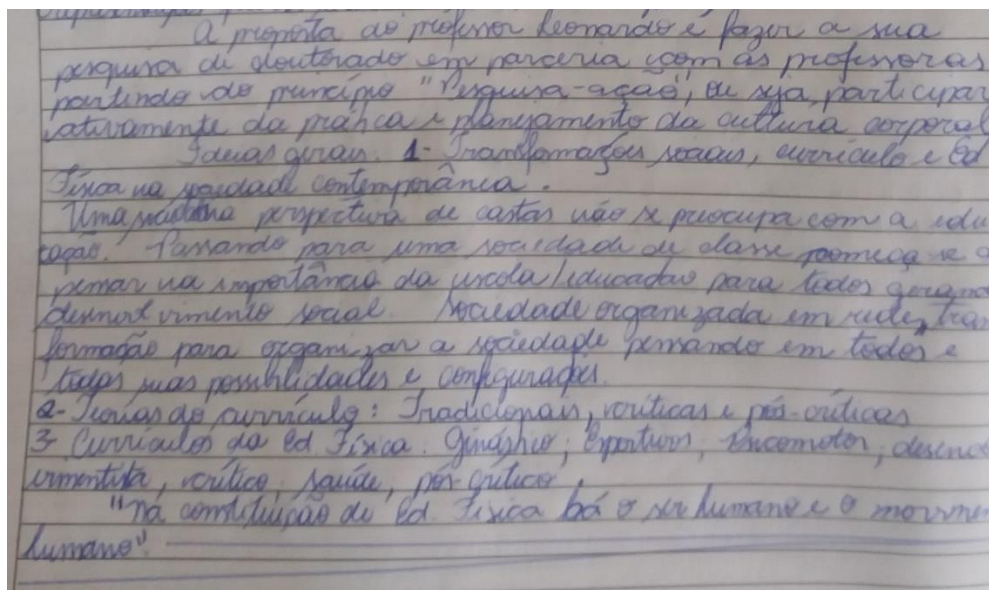 A proposta do professor Leonardo é fazer a sua
pesquisa de doutorado em parceria com as professoras
partindo do princípio "Pesquisa-ação", ou seja, participar
ativamente da prática e planejamento da cultura corporal
Ideias gerais. 1- Transformações sociais, currículo e Ed
Física na sociedade contemporânea.
Uma perspectiva de castas não se preocupa com a edu
cação. Passando para uma sociedade de classe começa se a
pensar na importância da escola/educação para todos gerando
desenvolvimento social. Sociedade organizada em rede, tran
formação para organizar a sociedade pensando em todos e
todas suas possibilidades e configurações.
2- Teorias do currículo: Tradicionais, críticas e pós-críticas
3- Currículos da Ed. Física. Ginástico, Esportivos, Psicomotor, desenvol
vimentista, crítico, saúde, pós-crítico
"Na constituição de Ed. Física há o ser humano e o movimen
humano".